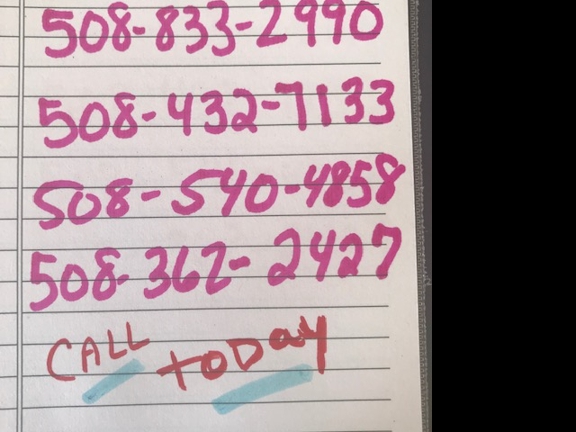 508-833-2990
508-432-7133
508-540-4858
508-362-2427
CALL toDay